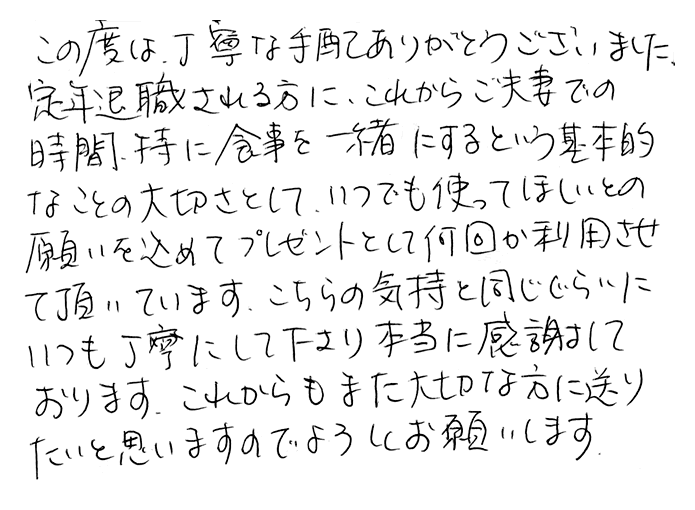 この度は、丁寧な手配ありがとうございました。
定年退職される方に、これからご夫妻での
時間、特に食事を一緒にするという基本的
なことの大切さとして、いつでも使ってほしいとの
願いを込めてプレゼントとして何回か利用させ
て頂いています。こちらの気持と同じぐらいに
いつも丁寧にして下さり本当に感謝して
おります。これからもまた大切な方に送り
たいと思いますのでよろしくお願いします。